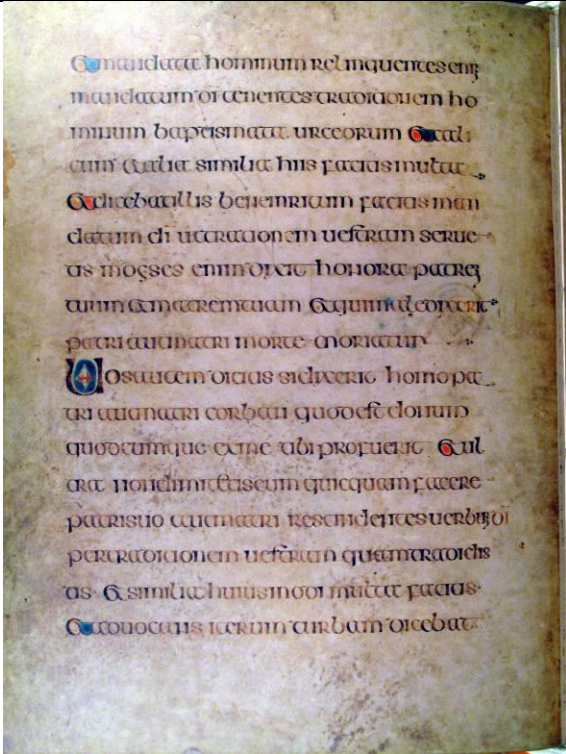 & mandata hominum relinquentes eni
mandatum di tenentes tradicionem ho
minum baptismata urceorum & cali
cum & alia similia hiis facitis multa
& dicebat illis bene irritum facitis man
datum di ut traditionem uestram serue
tis moyses enim dixit honora patrem
tuum & matrem tuam & qui maledixerit
patri aut matri morte moriatur
Uos autem dicitis si dixerit homo pa
tri aut matri corban quod est donum
quodcumque ex me tibi profuerit & ul
tra non dimittitis eum quicquam facere
patri suo aut matri rescindentes uerbum di
per tradicionem uestram quam tradidis
tis & similia huiusmodi multa facitis
& aduocans iterum turbam dicebat